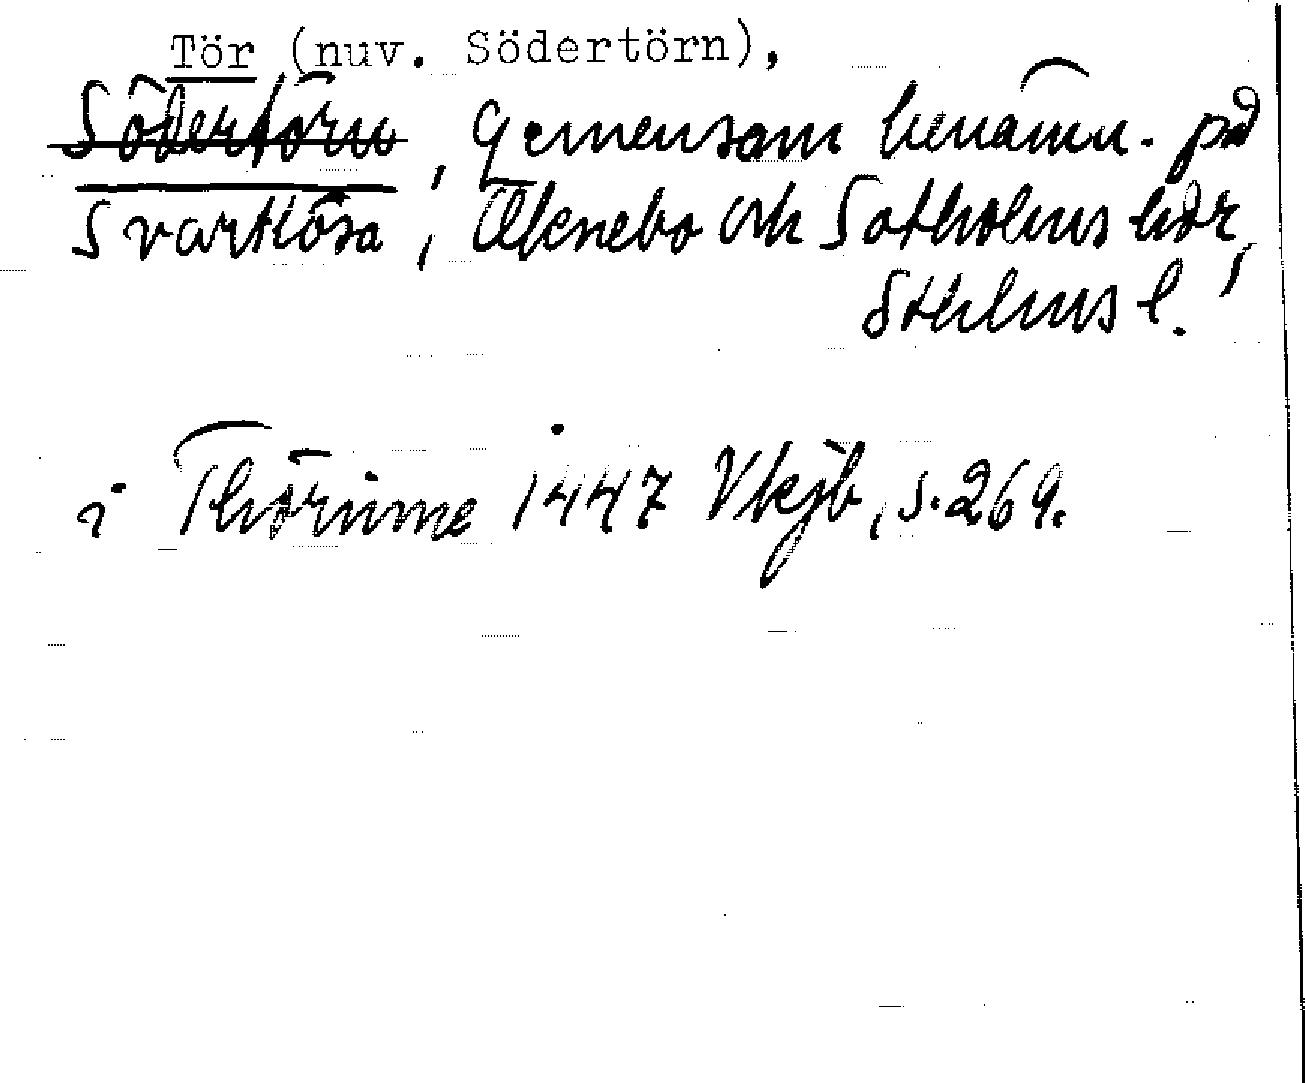 Tör (nuv. Södertörn),
Södertörn, gemensam benämn. på
Svartlösa, Öknebo och Sotholms hdr,
Sthlms l.
i Thörinne 1447 Vkjb, s. 269.